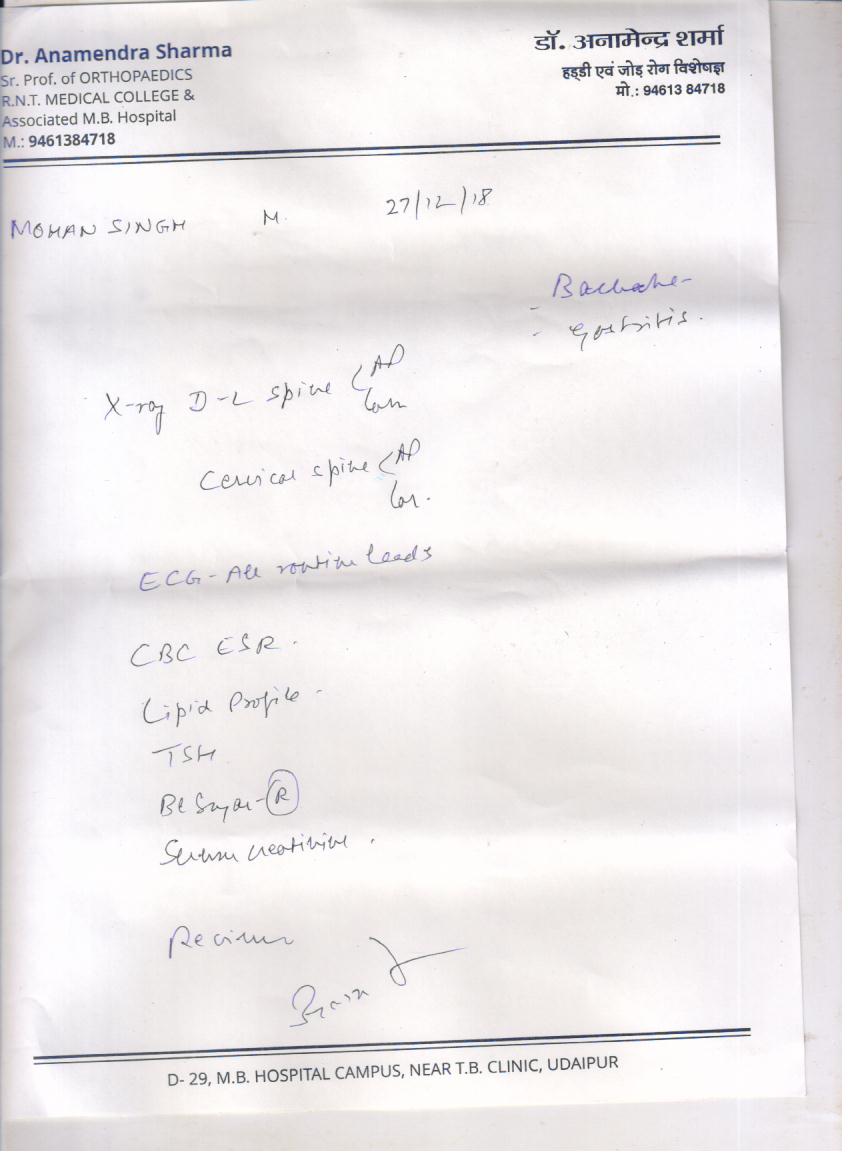 Dr. Anamendra Sharma
Sr. Prof. of ORTHOPAEDICS
R.N.T. MEDICAL COLLEGE &
Associated M.B. Hospital
M.: 9461384718
डॉ. अनामेन्द्र शर्मा
हड्डी एवं जोड़ रोग विशेषज्ञ
मो.: 94613 84718
MOHAN SINGH M. 27/12/18
- Backache
- gastritis.
X-ray D-L spine < AP
Lat
Cervical spine < AP
Lat.
ECG - All routine leads
CBC ESR.
Lipid Profile -
TSH
Bl Sugar - R
Serum creatinine.
Review
D- 29, M.B. HOSPITAL CAMPUS, NEAR T.B. CLINIC, UDAIPUR